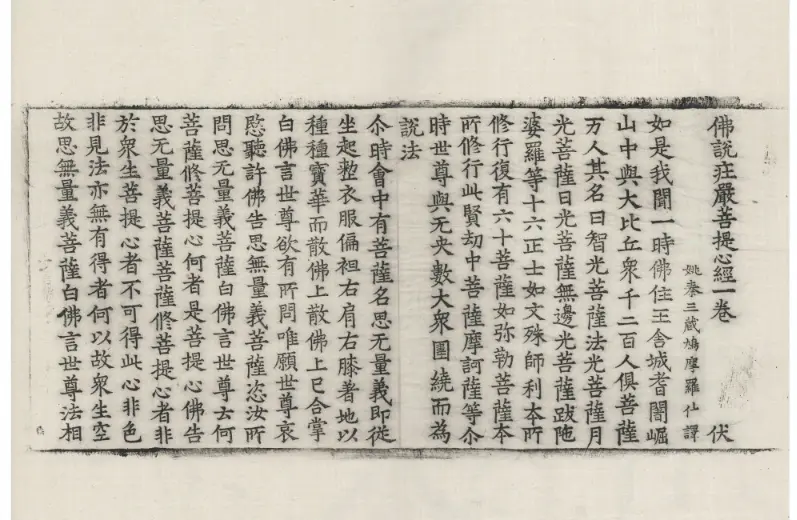 佛說莊嚴菩提心經一卷 伏
姚秦三藏鳩摩羅什譯
如是我聞一時佛住王舍城耆闍崛
山中與大比丘衆千二百人俱菩薩
万人其名曰智光菩薩法光菩薩月
光菩薩日光菩薩無邊光菩薩跋陁
婆羅等十六正士如文殊師利本所
修行復有六十菩薩如弥勒菩薩本
所修行此賢劫中菩薩摩訶薩等尒
時世尊與无央數大衆圍繞而為
說法
尒時會中有菩薩名思无量義即從
坐起整衣服偏袒右肩右膝著地以
種種寶華而散佛上散佛上已合掌
白佛言世尊欲有所問唯願世尊哀
愍聽許佛告思無量義菩薩恣汝所
問思无量義菩薩白佛言世尊云何
菩薩修菩提心何者是菩提心佛告
思无量義菩薩菩薩修菩提心者非
於衆生菩提心者不可得此心非色
非見法亦無有得者何以故衆生空
故思無量義菩薩白佛言世尊法相